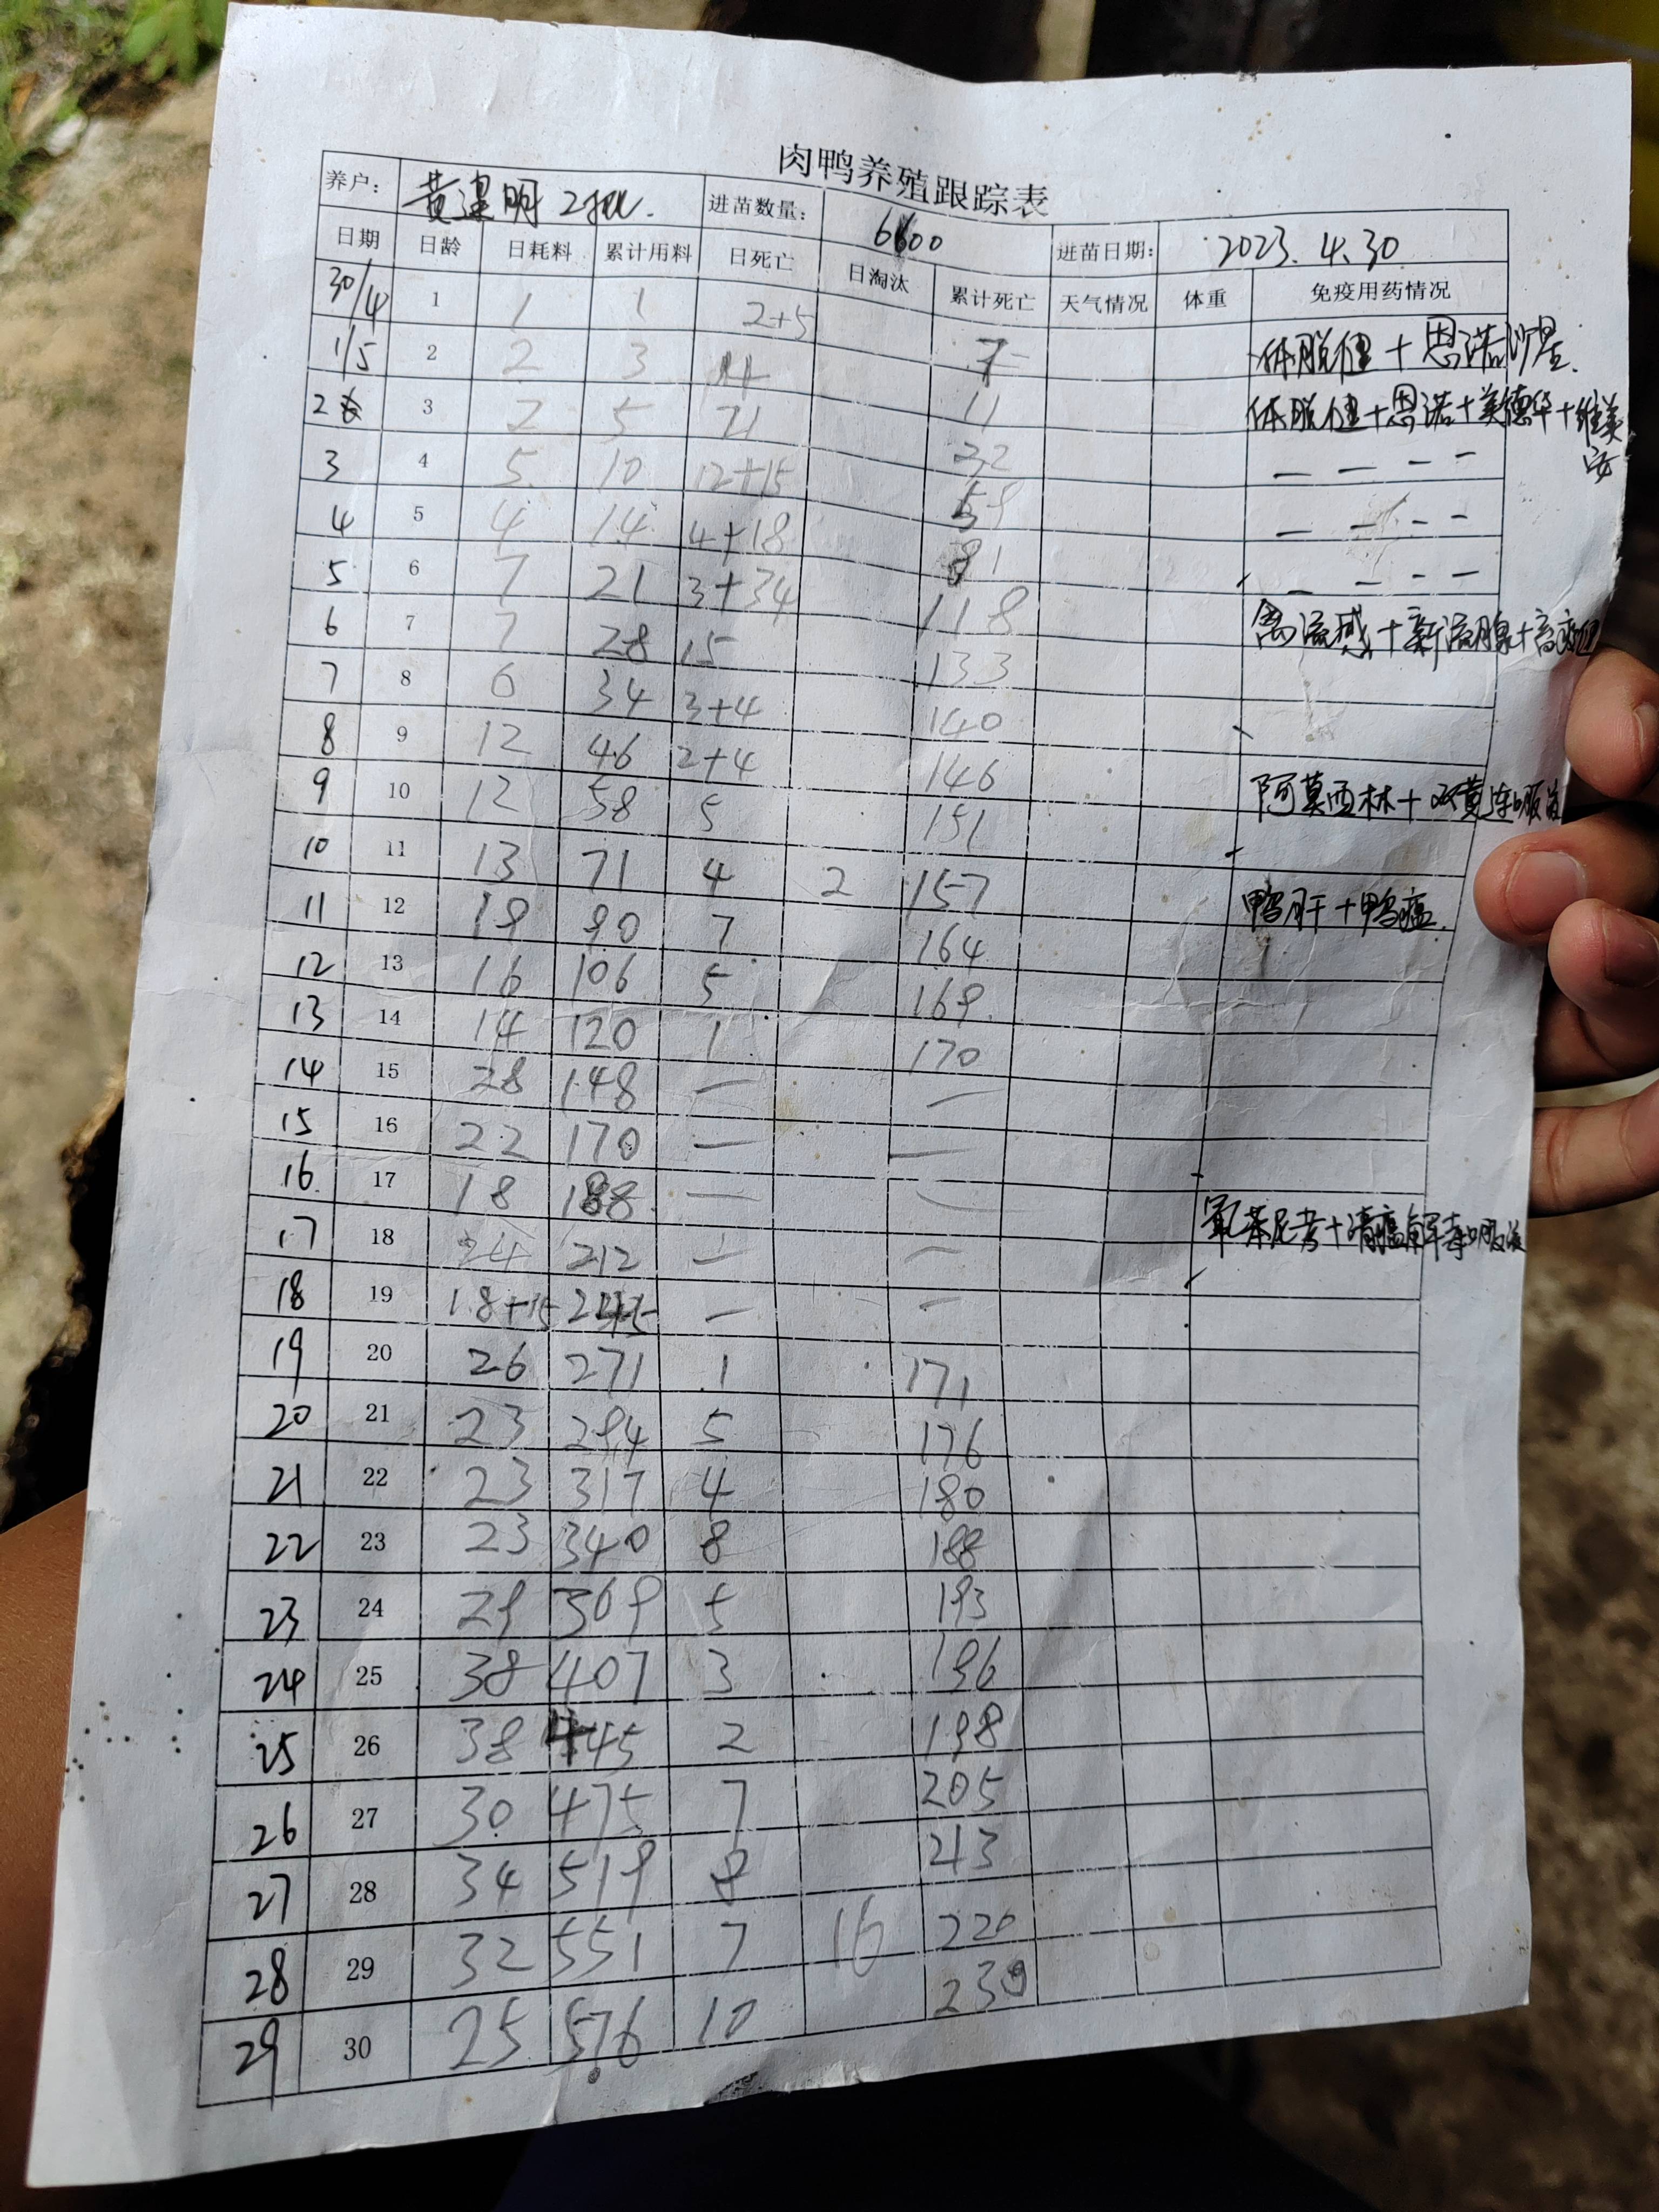 肉鸭养殖跟踪表
养户： 黄 明 2批. 进苗数量： 6600 进苗日期： 2023.4.30
日期 日龄 日耗料 累计用料 日死亡 日淘汰 累计死亡 天气情况 体重 免疫用药情况
30/4 1 1 1 2+5 7 体脱健+恩诺沙星.
1/5 2 2 3 4 11 体脱健+恩诺+美德华+维美安
2 3 2 5 21 32 — — — —
3 4 5 10 12+15 59 — — — —
4 5 4 14 4+18 81 — — — —
5 6 7 21 3+34 118 禽流感+新流腺+高
6 7 7 28 15 133
7 8 6 34 3+4 140
8 9 12 46 2+4 146 阿莫西林+双黄连口服液
9 10 12 58 5 151
10 11 13 71 4 2 157 鸭肝+鸭瘟.
11 12 19 90 7 164
12 13 16 106 5 169
13 14 14 120 1 170
14 15 28 148 — —
15 16 22 170 — —
16 17 18 188 — — 氟苯尼考+清瘟解毒口服液
17 18 24 212 — —
18 19 18+15 245 — —
19 20 26 271 1 171
20 21 23 294 5 176
21 22 23 317 4 180
22 23 23 340 8 188
23 24 29 369 5 193
24 25 38 407 3 196
25 26 38 445 2 198
26 27 30 475 7 205
27 28 34 519 8 213
28 29 32 551 7 16 220
29 30 25 576 10 230